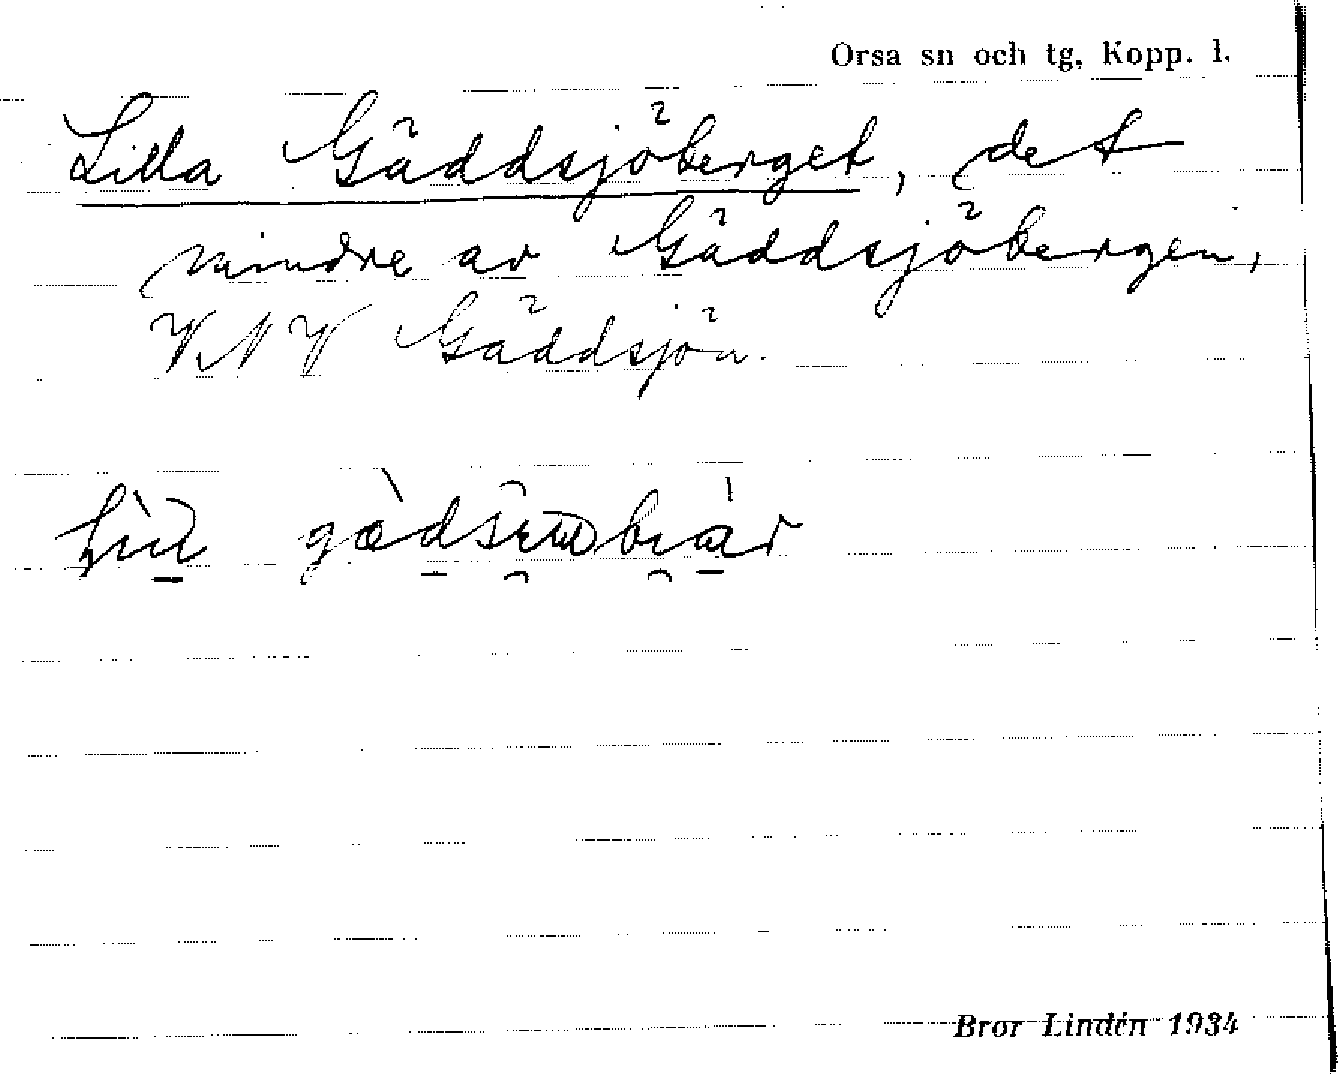 Orsa sn och tg, Kopp. l.
Lilla Gäddsjöberget, det
mindre av Gäddsjöbergen,
VNV Gäddsjön.
Bror Lindén 1934